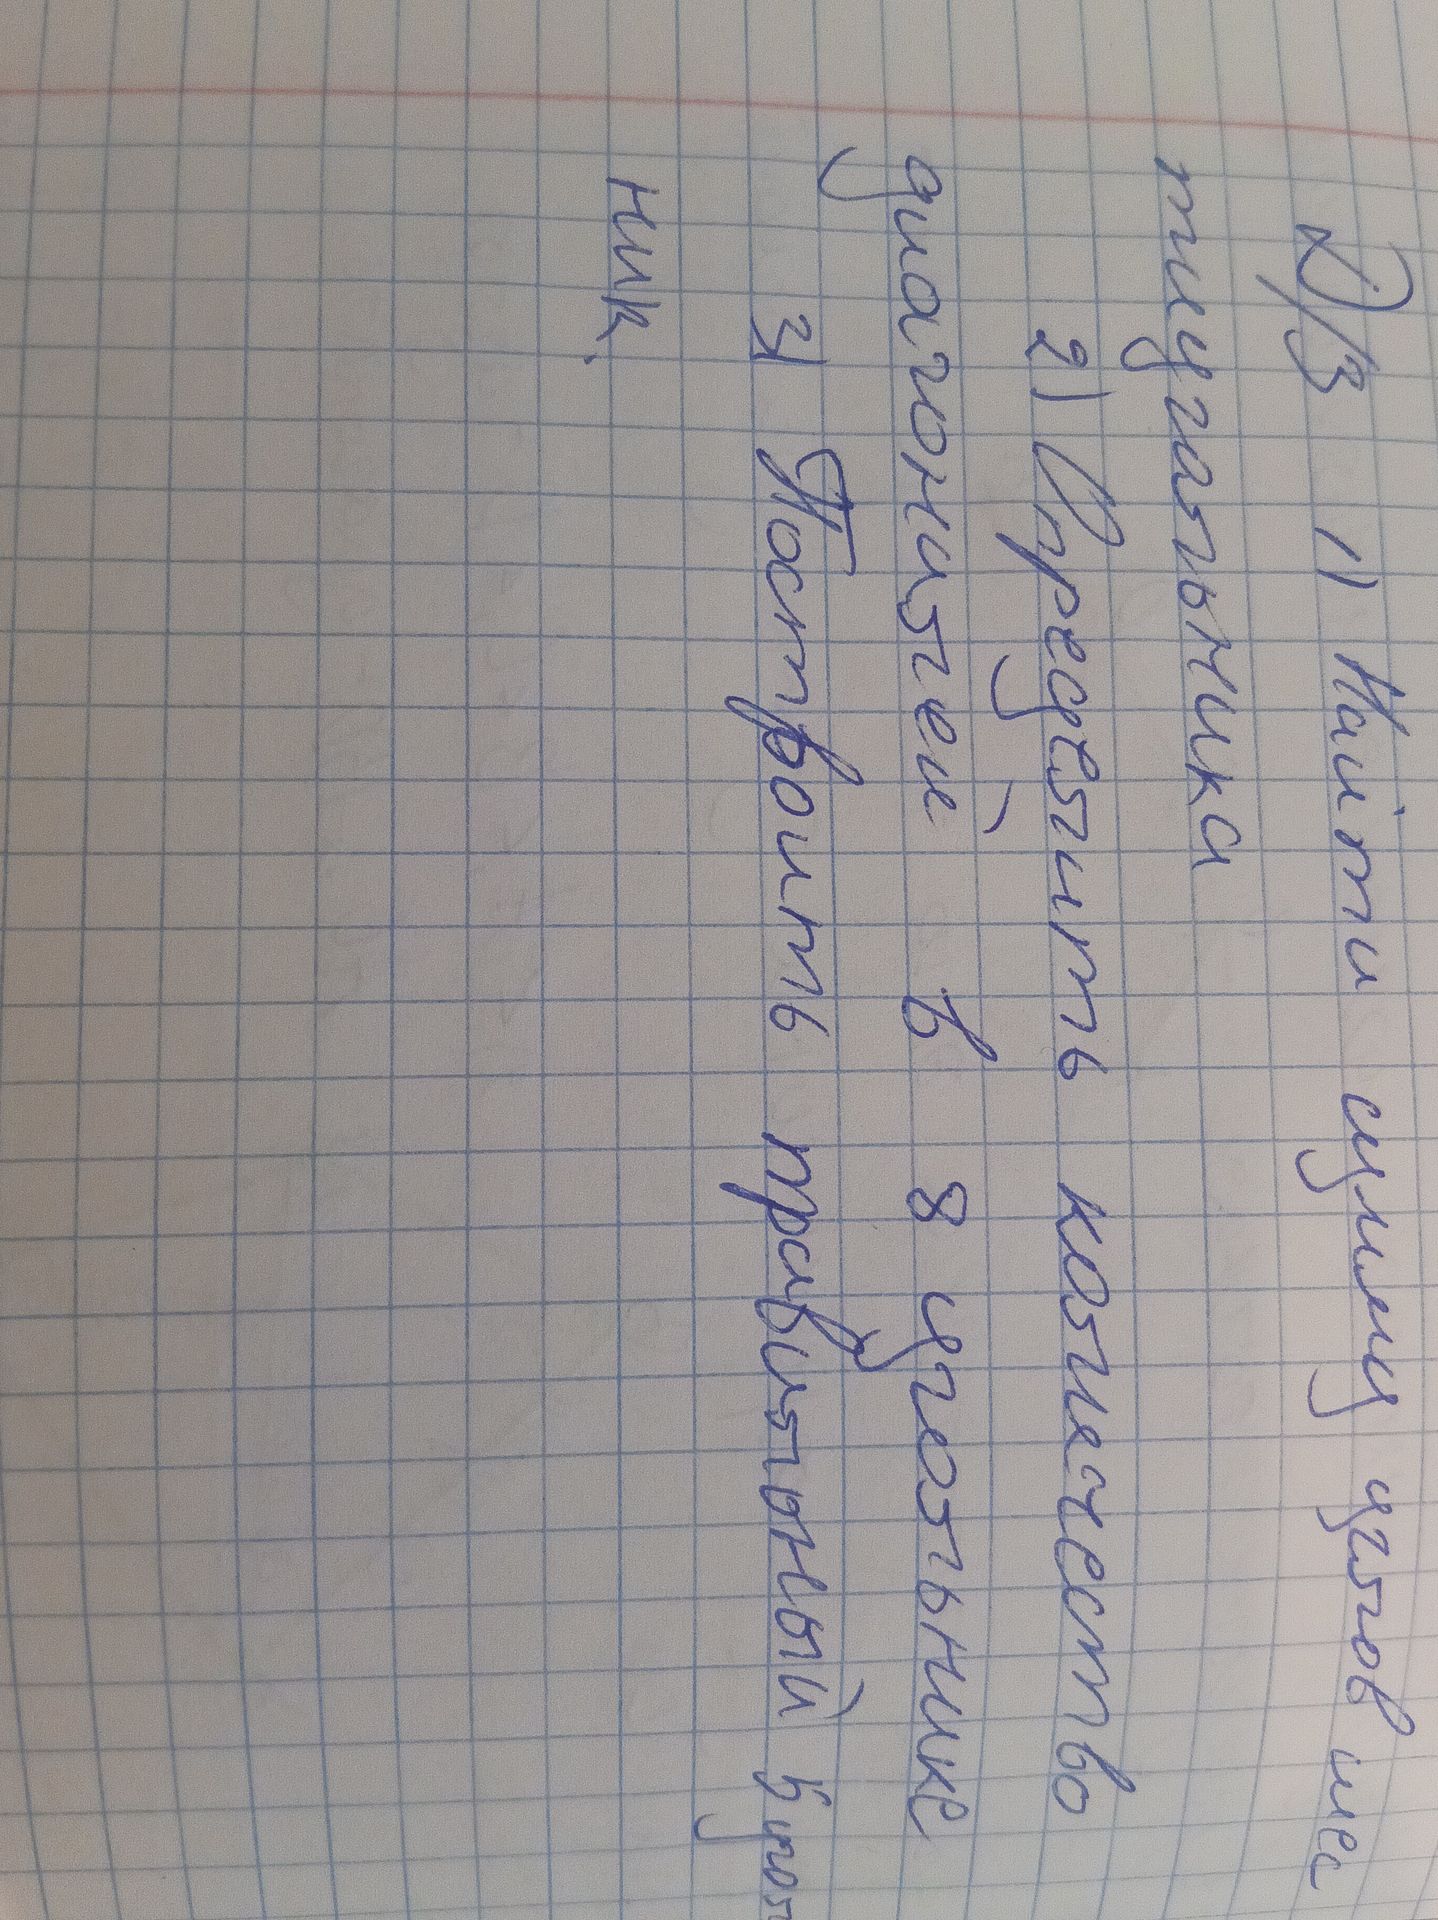 Д/З 1) Найти сумму углов шес
тиугольника
2) Определить количество
диагоналей в 8 угольнике
3) Построить правильный 5 угол
ник.